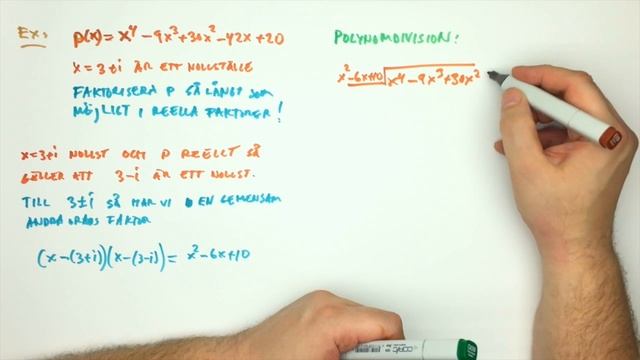 Ex:
p(x) = x⁴ - 9x³ + 30x² - 42x + 20
x = 3+i ÄR ETT NOLLSTÄLLE
FAKTORISERA P SÅ LÅNGT SOM
MÖJLIGT I REELLA FAKTORER!
x = 3+i NOLLST OCH P REELLT SÅ
GÄLLER ATT 3-i ÄR ETT NOLLST.
TILL 3±i SÅ HAR VI EN GEMENSAM
ANDRA GRADS FAKTOR
(x-(3+i))(x-(3-i)) = x² - 6x + 10
POLYNOMDIVISION:
x² - 6x + 10 x⁴ - 9x³ + 30x²
COPIC